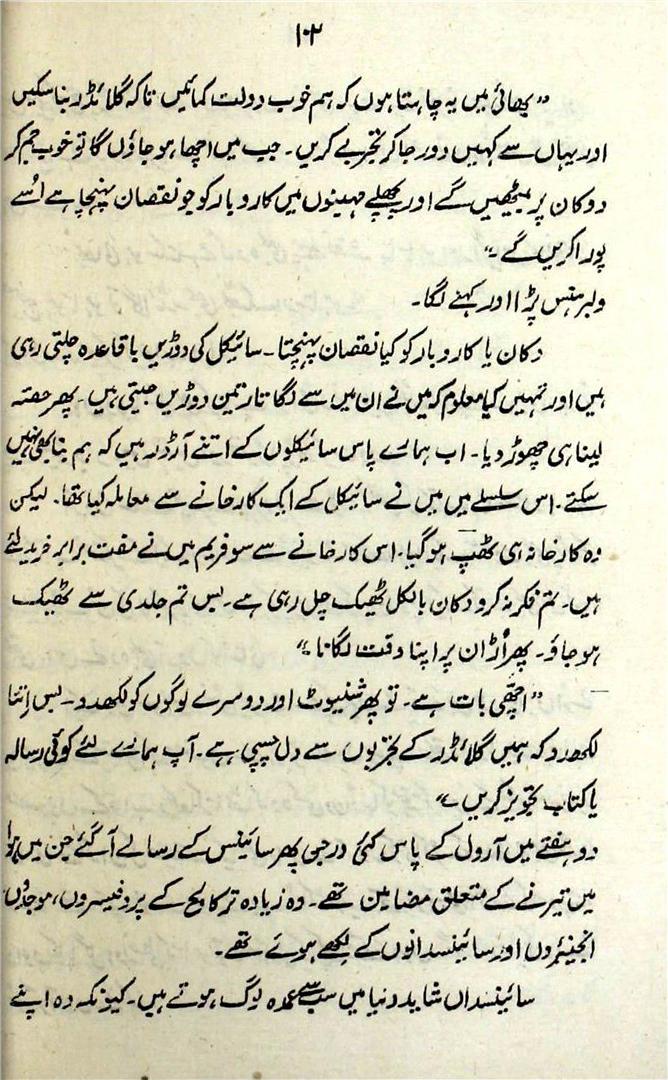 ۱۰۲
"بھائی میں یہ چاہتا ہوں کہ ہم خوب دولت کمائیں تاکہ گلائڈر بنا سکیں
اور یہاں سے کہیں دور جا کر تجربے کریں۔ جب میں اچھا ہو جاؤں گا تو خوب جم کر
دوکان پر بیٹھیں گے اور پچھلے مہینوں میں کاروبار کو جو نقصان پہنچا ہے اُسے
پورا کریں گے۔"
ولبر ہنس پڑا اور کہنے لگا۔
دکان یا کاروبار کو کیا نقصان پہنچتا۔ سائیکل کی دوڑیں باقاعدہ چلتی رہی
ہیں اور تمہیں کیا معلوم کہ میں نے ان میں سے لگاتار تین دوڑیں جیتی ہیں۔ پھر حصّہ
لینا ہی چھوڑ دیا۔ اب ہمارے پاس سائیکلوں کے اتنے آرڈر ہیں کہ ہم بنا بھی نہیں
سکتے۔ اس سلسلے میں میں نے سائیکل کے ایک کارخانے سے معاملہ کیا تھا۔ لیکن
وہ کارخانہ ہی ٹھپ ہو گیا۔ اس کارخانے سے سو فریم میں نے مفت برابر خرید لئے
ہیں۔ تم فکر نہ کرو دکان بالکل ٹھیک چل رہی ہے۔ بس تم جلدی سے ٹھیک
ہو جاؤ۔ پھر اُڑان پر اپنا وقت لگانا۔"
"اچھی بات ہے۔ تو پھر شنیوٹ اور دوسرے لوگوں کو لکھ دو۔ بس اِتنا
لکھ دو کہ ہمیں گلائڈر کے تجربوں سے دل چسپی ہے۔ آپ ہمارے لئے کوئی رسالہ
یا کتاب تجویز کریں۔"
دو ہفتے میں آرول کے پاس کئی درجن پھر سائینس کے رسالے آ گئے جن میں ہوا
میں تیرنے کے متعلق مضامین تھے۔ وہ زیادہ تر کالج کے پروفیسروں، موجدوں
انجنیئروں اور سائینسدانوں کے لکھے ہوئے تھے۔
سائینسداں شاید دنیا میں سب سے عمدہ لوگ ہوتے ہیں۔ کیونکہ وہ اپنے